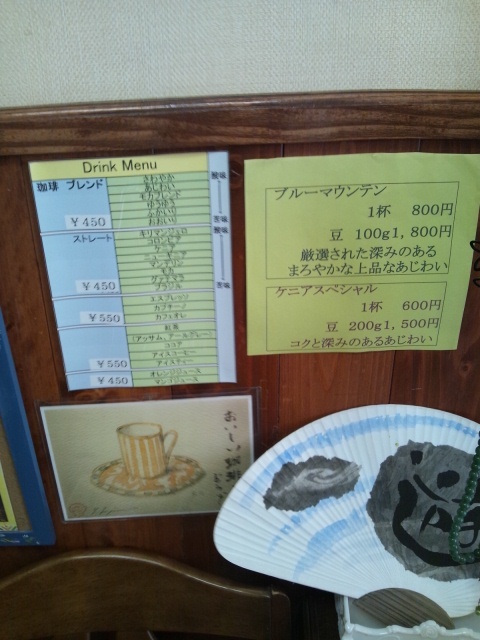 Drink Menu
珈琲 ブレンド
さわやか
あじわい
モカブレンド
ゆうゆう
ふかいり
¥450
酸味
苦味
ストレート
キリマンジャロ
コロンビア
マンデリン
モカ
グァテマラ
ブラジル
¥450
酸味
苦味
エスプレッソ
カプチーノ
カフェオレ
¥550
紅茶
(アッサム、アールグレー)
ココア
アイスコーヒー
アイスティー
¥550
オレンジジュース
マンゴジュース
¥450
ブルーマウンテン
1杯 800円
豆 100g1,800円
厳選された深みのある
まろやかな上品なあじわい
ケニアスペシャル
1杯 600円
豆 200g1,500円
コクと深みのあるあじわい
おいしい珈琲